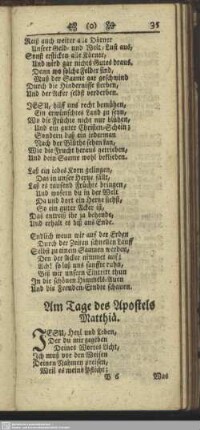 35
Reiß auch weiter alle Dörner
Unsrer Geld- und Welt-Lust aus,
Sonst ersticken alle Körner,
Und wird gar nichts Gutes draus.
Denn wo solche Felder sind,
Muß der Saame gar geschwind
Durch die Hindernisse sterben,
Und der Acker selbst verderben.
JESU, hilff uns recht bemühen,
Ein erwünschtes Land zu seyn,
Wo die Früchte nicht nur blühen,
Und ein guter Christen-Schein;
Sondern daß auch iederman
Nach der Blüthe sehen kan,
Wie die Frucht heraus getrieben,
Und dein Saame wohl beklieben.
Laß ein iedes Korn gelingen,
Das in unser Hertze fällt,
Laß es tausend Früchte bringen,
Und wofern du in der Welt
Da und dort ein Hertze siehst,
So ein guter Acker ist,
Das entwiß ihr ja behende,
Und erhalt es biß ans Ende.
Endlich wenn wir auf der Erden
Durch der Zeiten schnellen Lauff
Selbst zu einem Saamen werden,
Den der Acker nimmet auf;
Ach! so laß uns sanffte ruhn,
Biß wir unsern Eintritt thun
In die schönen Himmels-Auen
Und die Freuden-Ernde schauen.
Am Tage des Apostels
Matthiä.
JESU, Heyl und Leben,
Der du mir gegeben
Deines Wortes Licht,
Ich muß vor den Weisen
Deinen Nahmen preisen,
Weil es meine Pflicht:
Was